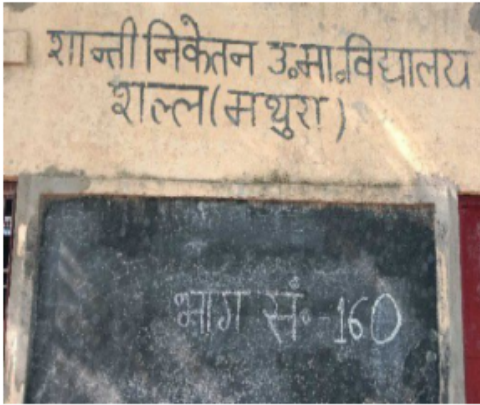 शान्ती निकेतन उ॰मा॰विद्यालय
शल्ल(मथुरा)
भाग सं॰-160